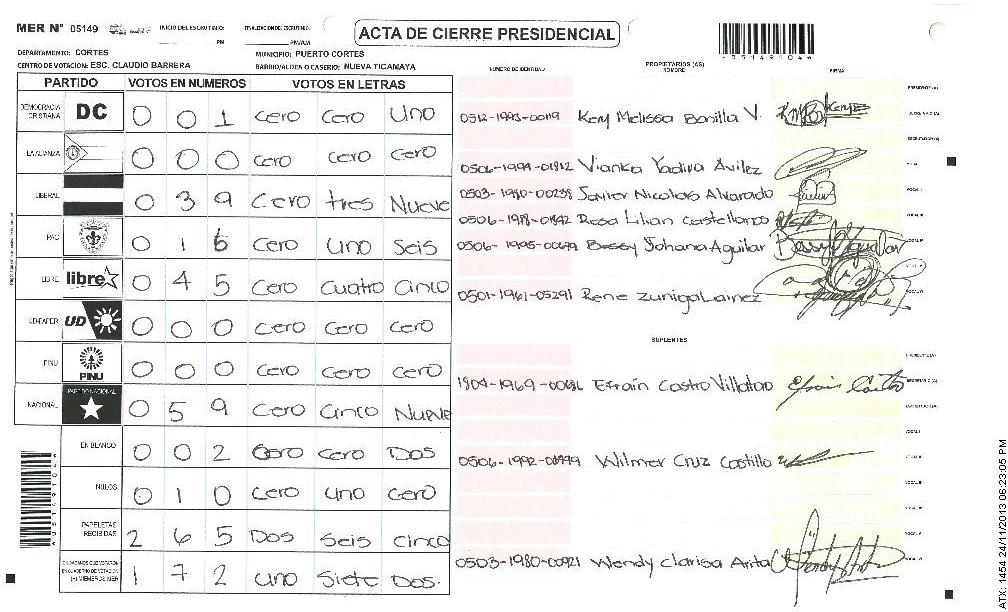 MER Nº 05149 INICIO DEL ESCRUTINIO: FINALIZACION DEL ESCRUTINIO:
PM PM/AM
ACTA DE CIERRE PRESIDENCIAL
DEPARTAMENTO: CORTES MUNICIPIO: PUERTO CORTES
CENTRO DE VOTACION: ESC. CLAUDIO BARRERA BARRIO/ALDEA O CASERIO: NUEVA TICAMAYA
PARTIDO VOTOS EN NUMEROS VOTOS EN LETRAS
DEMOCRACIA CRISTIANA DC 0 0 1 cero cero uno
LA ALIANZA 0 0 0 cero cero cero
LIBERAL 0 3 9 cero tres Nueve
PAC 0 1 6 cero uno seis
LIBRE libre 0 4 5 cero cuatro cinco
UD-FAPER UD 0 0 0 cero cero cero
PINU PINU 0 0 0 cero cero cero
NACIONAL PARTIDO NACIONAL 0 5 9 cero cinco Nueve
EN BLANCO 0 0 2 cero cero Dos
NULOS 0 1 0 cero uno cero
PAPELETAS RECIBIDAS 2 6 5 Dos seis cinco
CIUDADANOS QUE VOTARON EN CUADERNO DE VOTACION (+) MIEMBROS MER 1 7 2 uno siete Dos.
NUMERO DE IDENTIDAD PROPIETARIOS (AS) NOMBRE FIRMA
0512-1993-00119 Kery Melissa Bonilla V.
Vianka Yadira Avilez
0503-1980-00238 Javier Nicolas Alvarado
Rosa Lilian Castellanos
Bessy Johana Aguilar
0501-1961-05291 Rene Zuniga Lainez
SUPLENTES
Efrain Castro Villatoro
Wilmer Cruz Castillo
0503-1980-00921 Wendy Clarisa Arita
ATX: 1454 24/11/2013 06:23:05 PM